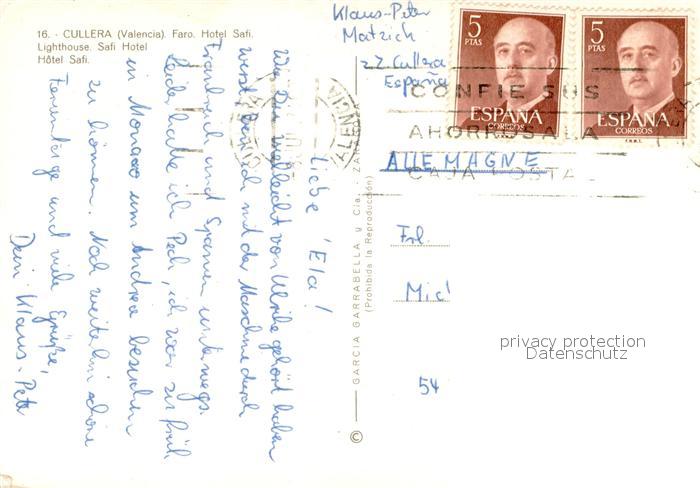 16. - CULLERA (Valencia). Faro. Hotel Safi.
Lighthouse. Safi Hotel
Hôtel Safi.
Klaus-Peter
Matzick
z.Z. Cullera
España
5
PTAS
ESPAÑA
CORREOS
5
PTAS
ESPAÑA
CORREOS
F.N.M.T.
VALENCIA
CONFIE SUS
AHORROS A LA
CAJA POSTAL
ALLEMAGNE
Frl.
Mic
54
GARCIA GARRABELLA y Cia. - ZA
(Prohibida la Reproducción)
©
Liebe 'Ela!
Wie Du vielleicht von Ulrike gehört haben
wirst, bin ich mit der Maschine durch
Frankreich und Spanien unterwegs.
Leider hatte ich Pech, ich war zu früh
in Monaco um Andrea besuchen
zu können. Noch weiterhin schöne
Ferientage und viele Grüße,
Dein Klaus-Peter
privacy protection
Datenschutz